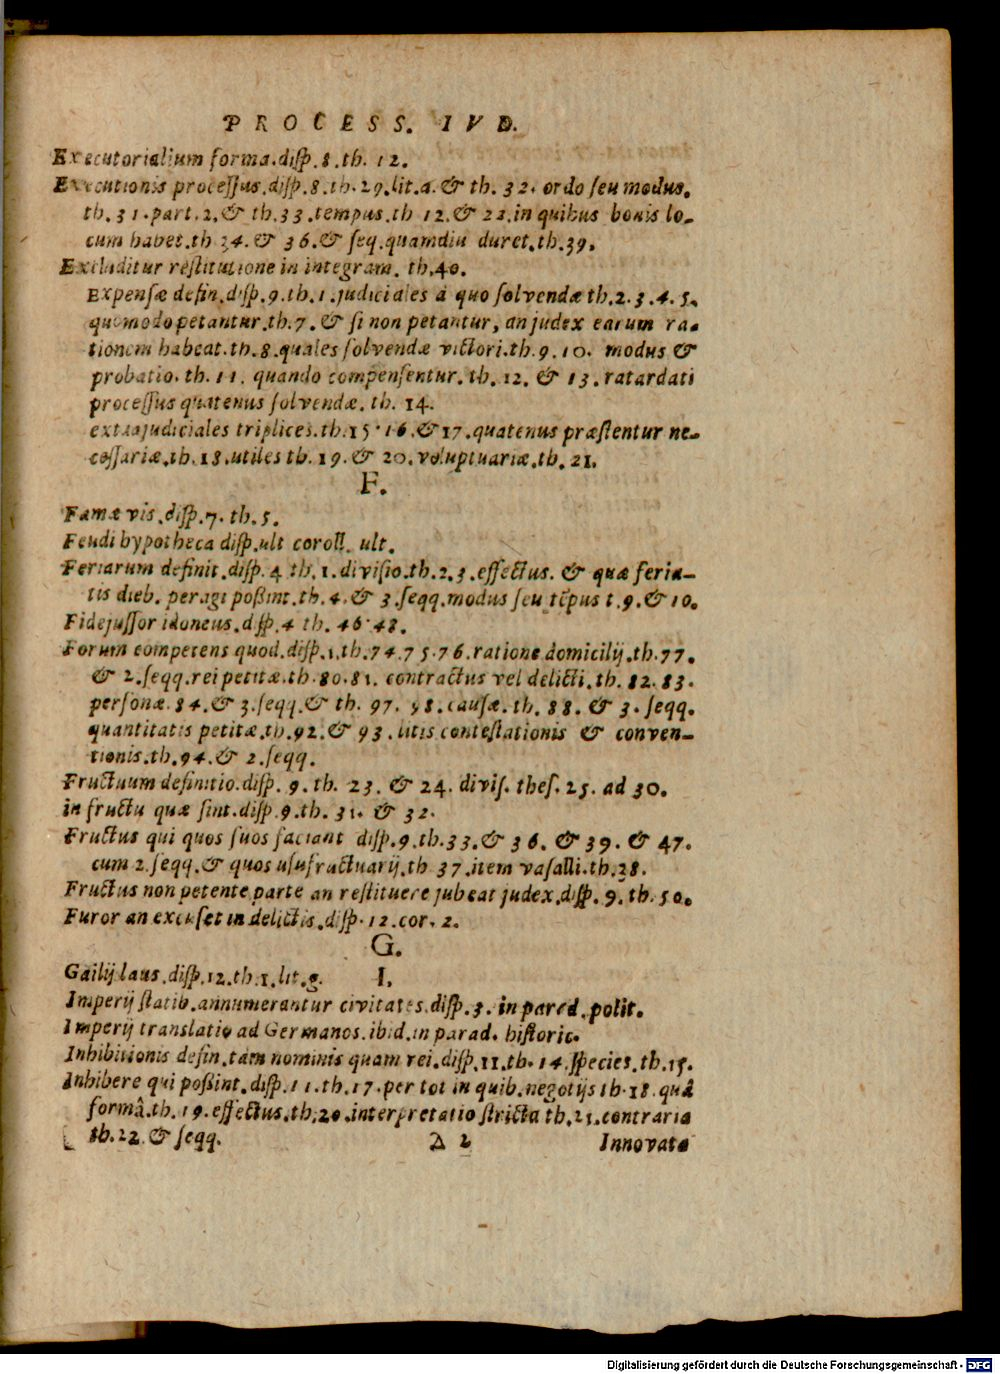 PROCESS. IVD.
Executorialium forma.disp.8.th. 12.
Executionis processus.disp.8.th.29.lit.a.& th. 32. ordo seu modus.
th.31.part.2.& th.33.tempus.th 12.& 22.in quibus bonis lo-
cum habet.th 34. & 36.& seq.quamdiu duret.th.39.
Excluditur restitutione in integram. th.40.
Expensæ defin.disp.9.th.1.judiciales à quo solvendæ th.2.3.4.5.
quomodo petantur.th.7.& si non petantur, an judex earum ra-
tionem habeat.th.8.quales solvendæ victori.th.9.10. modus &
probatio. th.11. quando compensentur. th. 12. & 13. ratardati
processus quatenus solvendæ. th. 14.
extrajudiciales triplices.th.15.16.&17.quatenus præstentur ne-
cessariæ.th.18.utiles th. 19.& 20.voluptuariæ.th. 21.
F.
Famæ vis.disp.7. th.5.
Feudi hypotheca disp.ult coroll. ult.
Feriarum definit.disp.4 th.1.divisio.th.2.3.effectus. & quæ feria-
tis dieb. peragi poßint.th.4.& 3.seqq.modus seu tẽpus t.9.&10.
Fidejussor idoneus.disp.4 th. 46.48.
Forum competens quod.disp.1.th.74.75.76.ratione domicilij.th.77.
& 2.seqq.rei petitæ.th.80.81. contractus vel delicti.th. 82.83.
personæ.84.& 3.seqq.& th. 97. 98.causæ.th. 88. & 3. seqq.
quantitatis petitæ.th.92.& 93.litis contestationis & conven-
tionis.th.94.& 2.seqq.
Fructuum definitio.disp. 9. th. 23. & 24. divis. thes.25. ad 30.
in fructu quæ sint.disp.9.th. 31. & 32.
Fructus qui quos suos faciant disp.9.th.33.& 36. & 39. & 47.
cum 2.seqq.& quos usufructuarij.th 37.item vasalli.th.38.
Fructus non petente parte an restituere jubeat judex.disp.9.th.50.
Furor an excuset in delictis.disp.12.cor.2.
G.
Gailij laus.disp.12.th.1.lit.g.
I.
Imperij statib.annumerantur civitates.disp.3. in parad.polit.
Imperij translatio ad Germanos.ibid.in parad. historic.
Inhibitionis defin.tam nominis quam rei.disp.11.th.14.species.th.15.
Inhibere qui poßint.disp.11.th.17.per tot in quib.negotijs th.18.quâ
formâ.th.19.effectus.th.20.interpretatio stricta th.21.contraria
th.22.& seqq.
A 2 Innovata
Digitalisierung gefördert durch die Deutsche Forschungsgemeinschaft - DFG